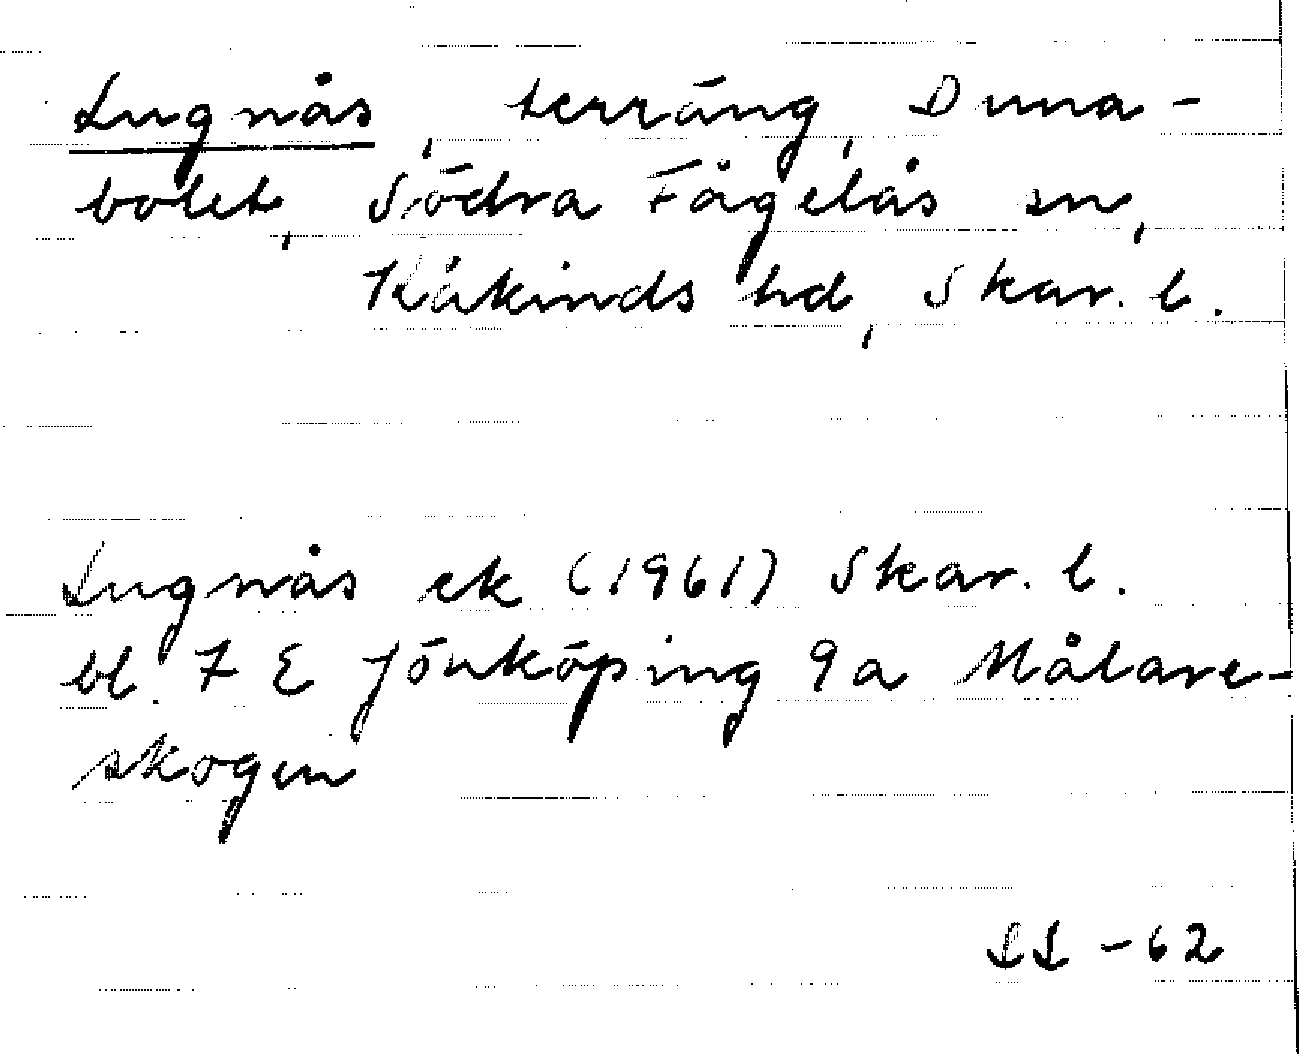 Lugnås, terräng, Duna-
bolet, Södra Fågelås sn,
Kåkinds hd, Skar. l.
Lugnås ek (1961) Skar. l.
bl. 7 E Jönköping 9a Målare-
skogen
LL -62